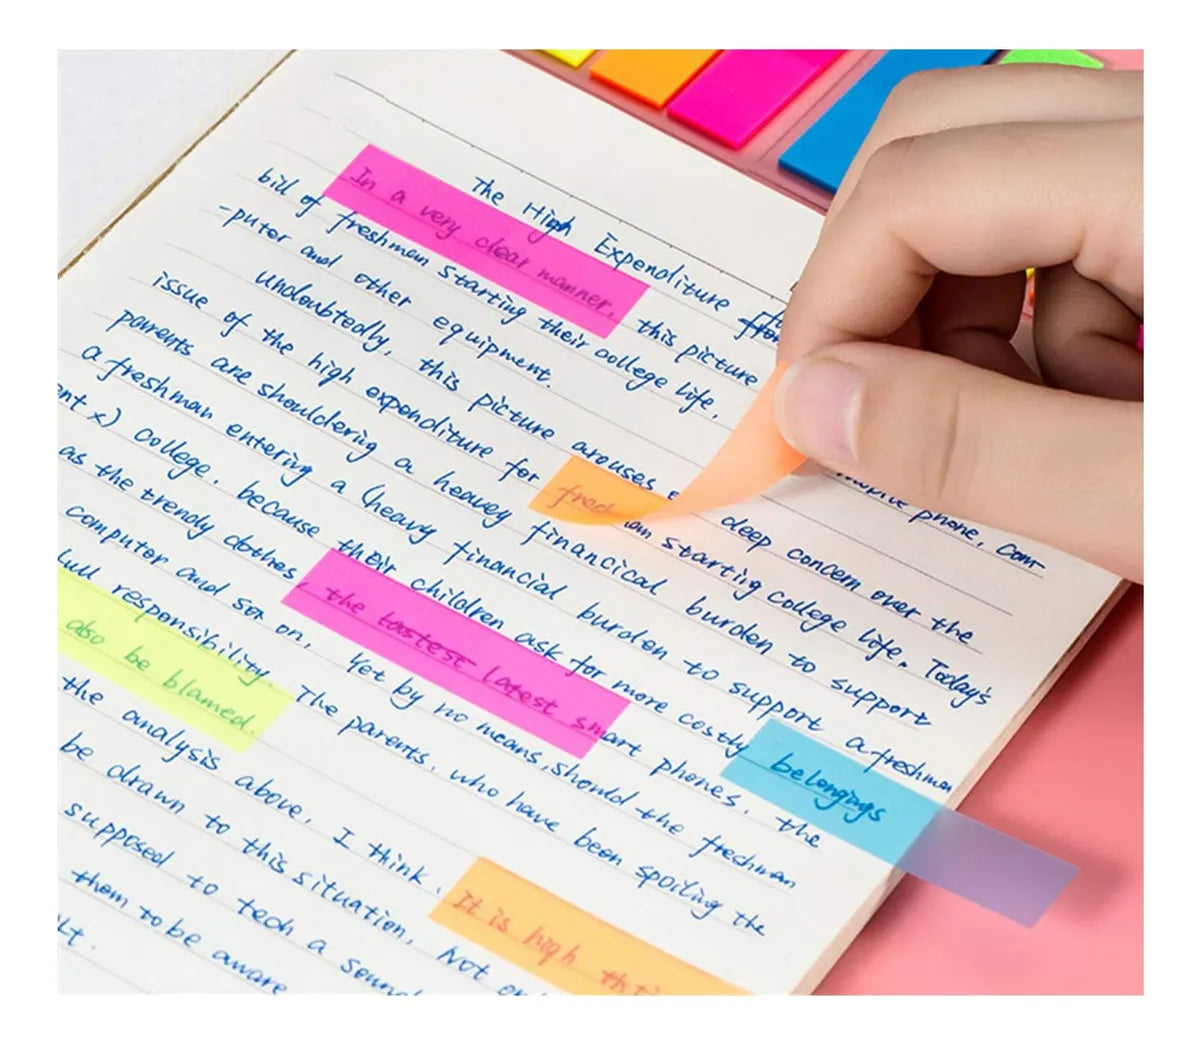 The High Expenditure for
In a very clear manner, this picture
bill of freshmen starting their college life, phone, com-
-puter and other equipment.
Undoubtedly, this picture arouses deep concern over the
issue of the high expenditure for freshman starting college life. Today's
parents are shouldering a heavey financical burden to support
a freshman entering a (heavy financial burden to support a freshman
ent x) college, because their children ask for more costly belongings
as the trendy clothes, the tastest latest smart phones, the
computer and so on. Yet by no means, should the freshman
full responsibility. The parents, who have been spoiling the
also be blamed.
the analysis above, I think, It is high
be drawn to this situation, Not
supposed to tech a
them to be aware
lt.